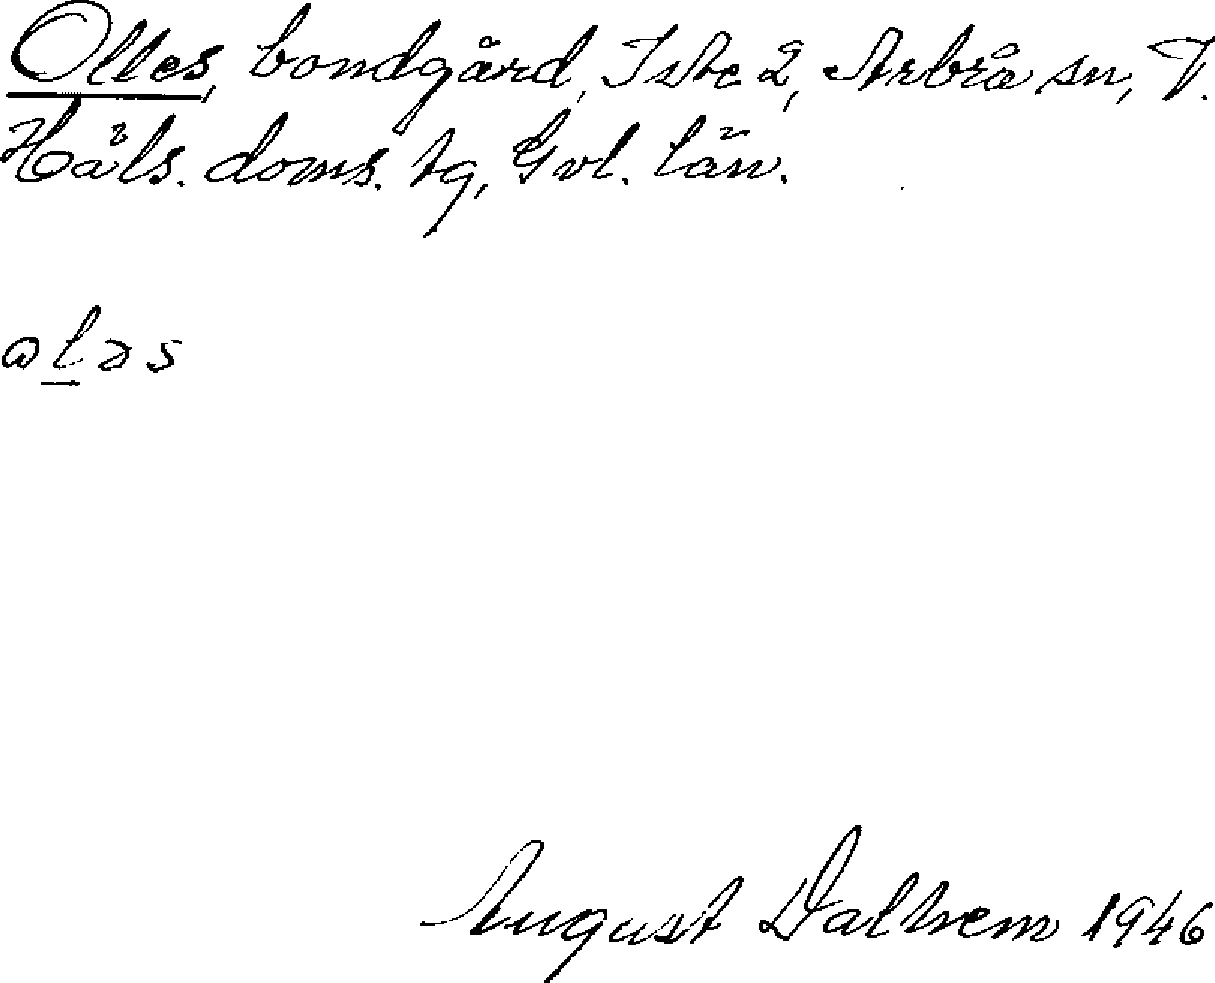 Olles, bondgård, Iste 2, Arbrå sn, V.
Häls. doms. tg, Gvl. län.
ɷl̲əs
August Dalhem 1946